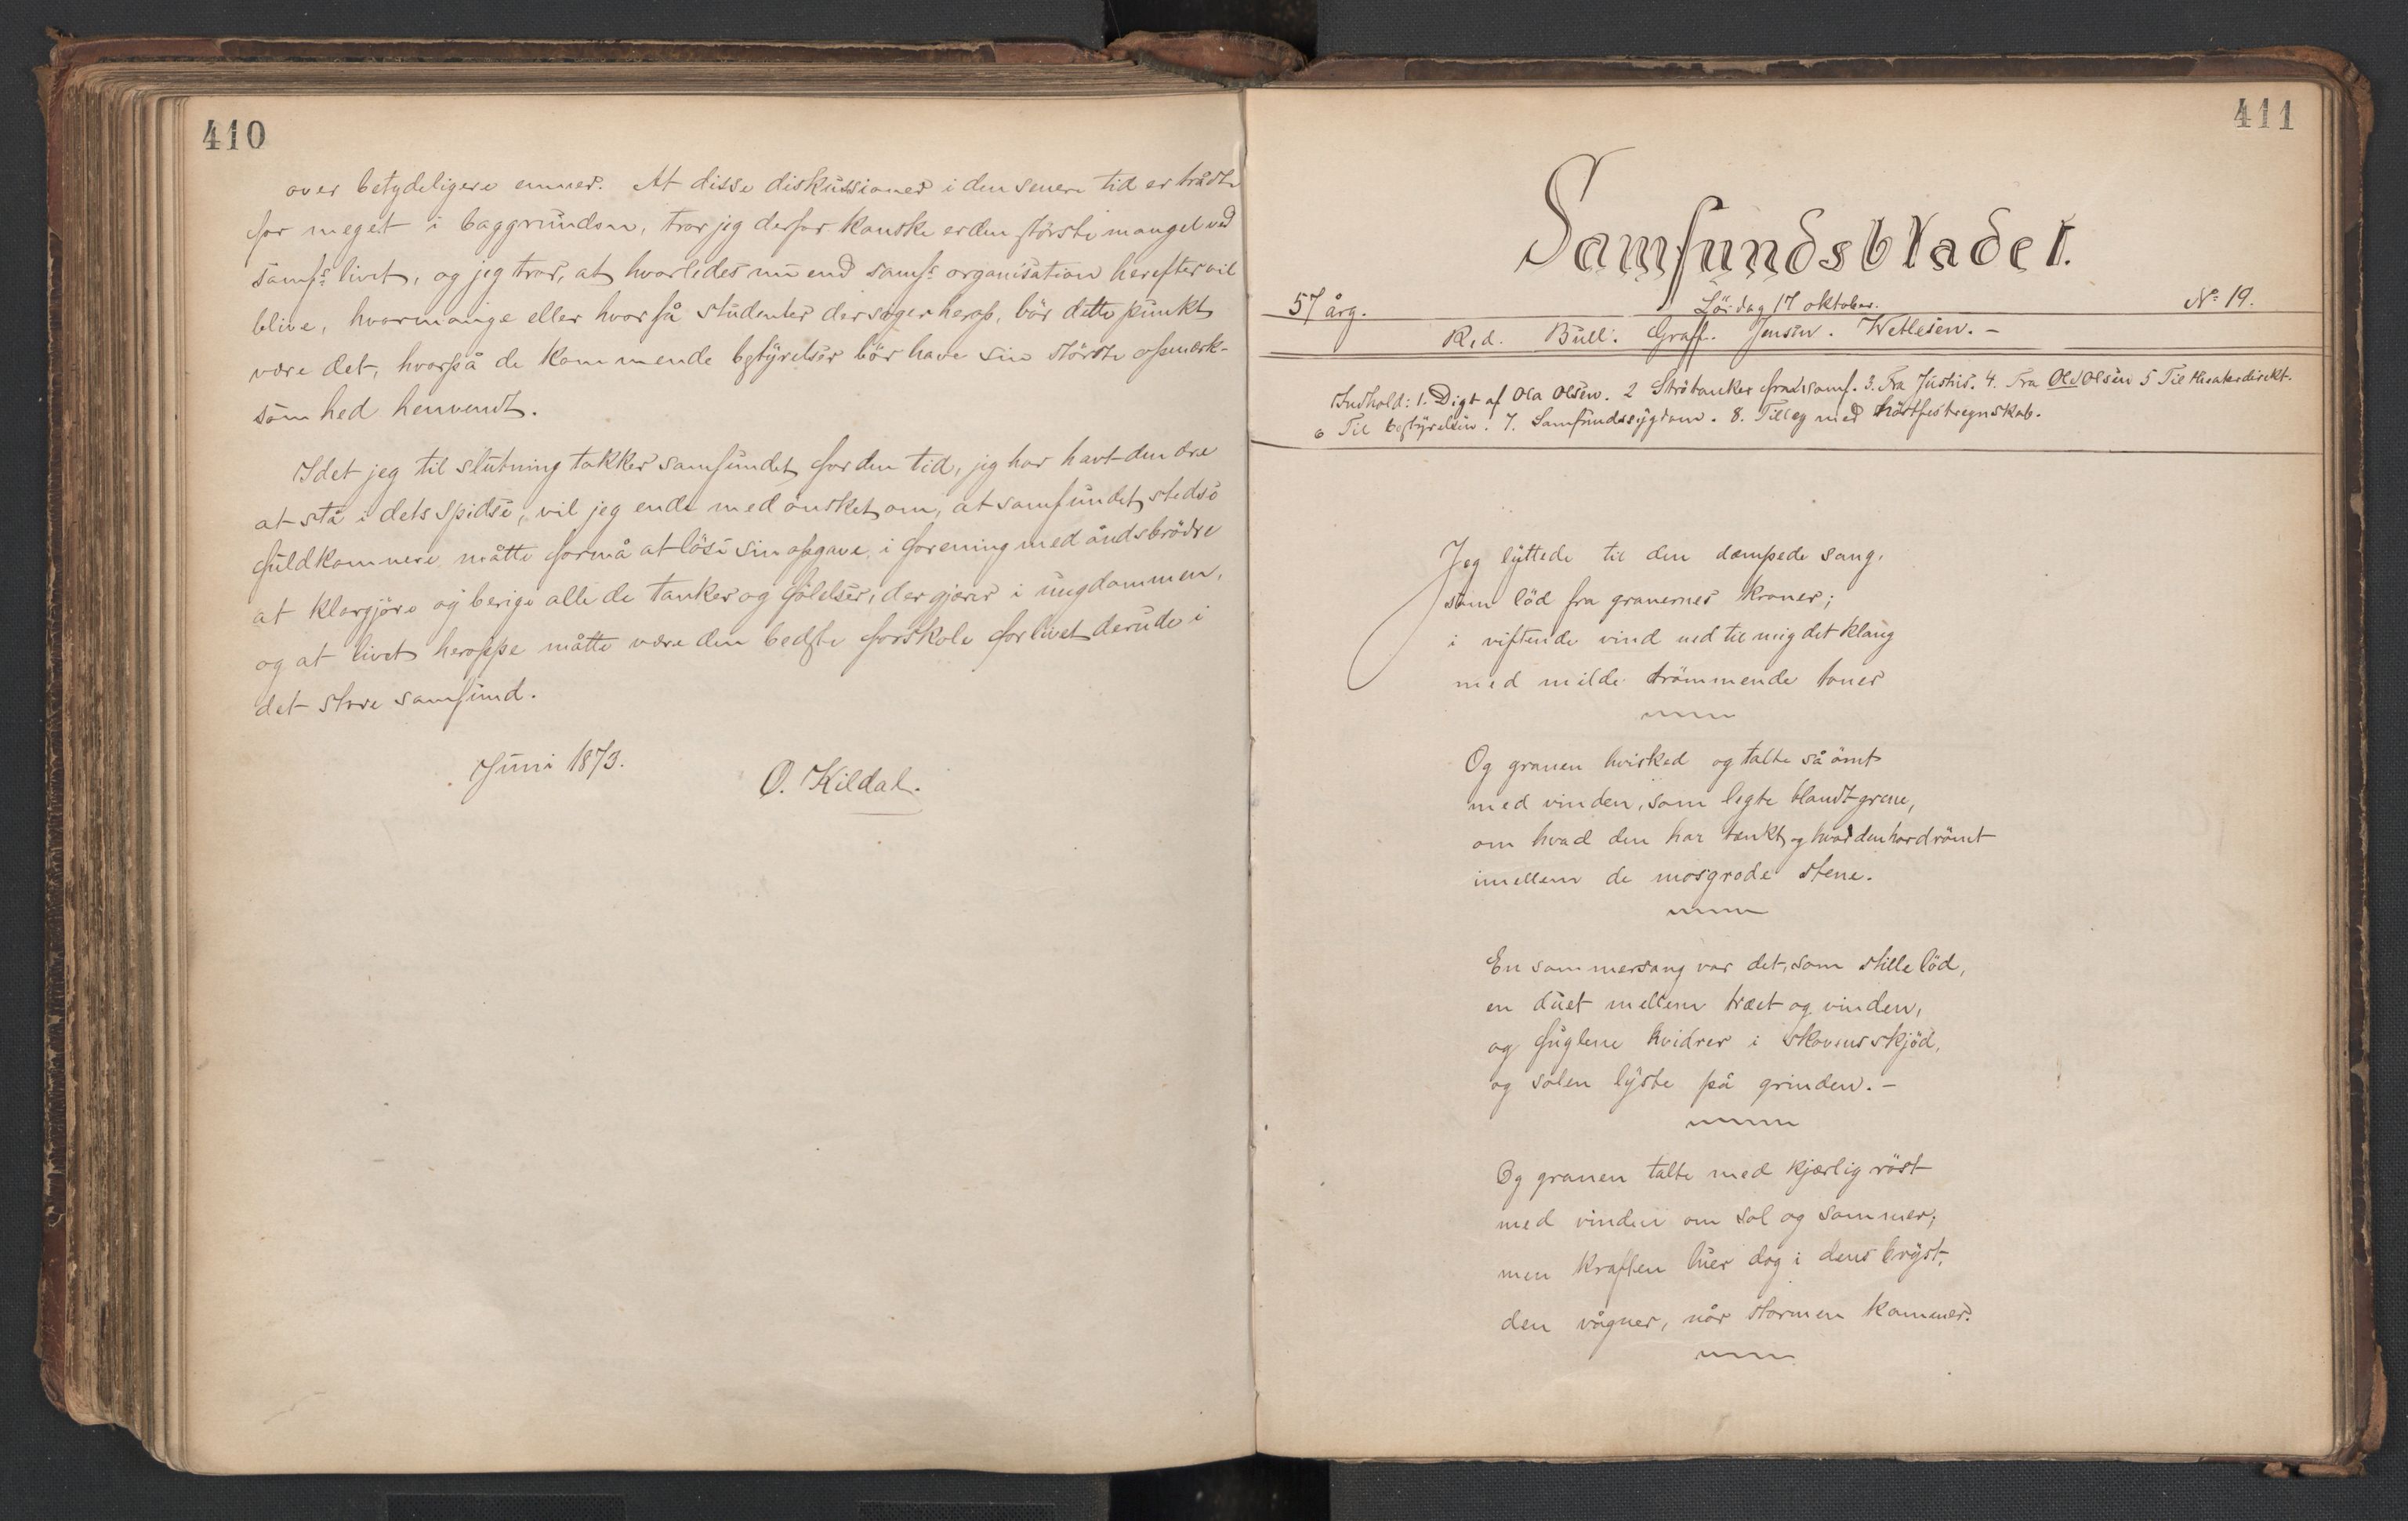 410
over betydeligere emner. At disse diskussioner i den senere tid er trådt
for meget i baggrunden, tror jeg derfor kanske er den störste mangel ved
samfs livet, og jeg tror, at hvorledes nu end samfs organisation herefter vil
blive, hvormange eller hvor få studenter der söger herop, bör dette punkt
være det, hvorpå de kommende bestyrelser bör have sin störste opmærk-
somhed henvendt.
Idet jeg til slutning takker samfundet for den tid, jeg har havt den ære
at stå i dets spidse, vil jeg ende med önsket om, at samfundet stedse
fuldkomnere måtte formå at löse sin opgave, i forening med åndsbrödre
at klargjöre og berige alle de tanker og fölelser, der gjærer i ungdommen,
og at livet heroppe måtte være den bedste forskole for livet derude i
det store samfund.
Juni 1873.
O. Kildal.
411
Samfundsbladet.
57 årg.
Lördag 17 oktober.
No 19.
Red. Bull. Graff. Jensen. Wetlesen. -
Indhold: 1. Digt af Ola Olsen. 2 Strötanker fra samf. 3. Fra Justus. 4. Fra Ola Olsen 5 Til theaterdirekt.
6 Til bestyrelsen. 7. Samfundssygdom. 8. Tillæg med höstfestregnskab.
Jeg lyttede til den dæmpede sang,
som löd fra granernes kroner;
i viftende vind ned til mig det klang
med milde drömmende toner
Og granen hvisked og talte så ömt
med vinden, som legte blandt grene,
om hvad den har tænkt og hvad den har drömt
imellem de mosgrode stene.
En sommersang var det, som stille löd,
en duet mellem træet og vinden,
og fuglene kvidrer i skovens skjöd,
og solen lyste på grinden. -
Og granen talte med kjærlig röst
med vinden om sol og sommer;
men kraften luer dog i dens bryst,
den vågner, når stormen kommer.